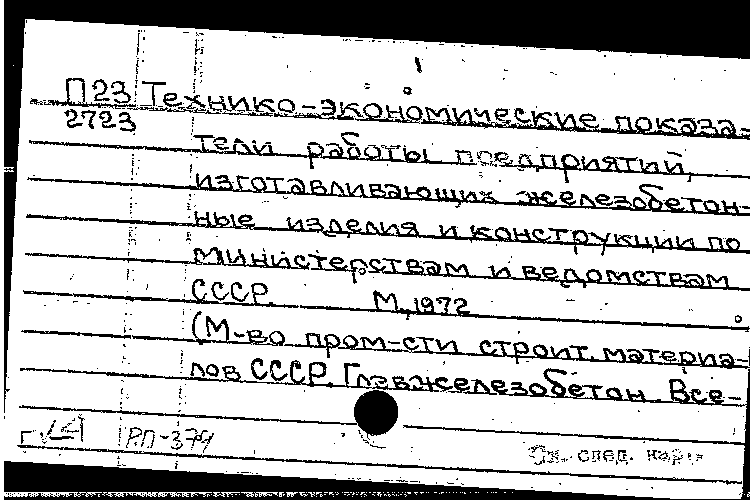 П23 Технико-экономические показа-
2723
тели работы предприятий,
изготавливающих железобетон-
ные изделия и конструкции по
министерствам и ведомствам
СССР. М., 1972
(М-во пром-сти строит. материа-
лов СССР. Главжелезобетон. Все-
РП-374
См. след. карт.